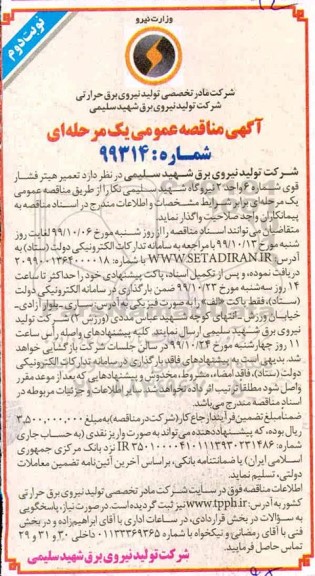 وزارت نیرو
نوبت دوم
شرکت مادر تخصصی تولید نیروی برق حرارتی
شرکت تولید نیروی برق شهید سلیمی
آگهی مناقصه عمومی یک مرحله‌ای
شماره: ۹۹۳۱۴
شرکت تولید نیروی برق شهید سلیمی در نظر دارد تعمیر هیتر فشار
قوی شماره ۶ واحد ۲ نیروگاه شهید سلیمی نکا را از طریق مناقصه عمومی
یک مرحله‌ای برابر شرایط مشخصات و اطلاعات مندرج در اسناد مناقصه به
پیمانکاران واجد صلاحیت واگذار نماید.
متقاضیان می‌توانند اسناد مناقصه را از روز شنبه مورخ ۹۹/۱۰/۰۶ لغایت روز
شنبه مورخ ۹۹/۱۰/۱۳ با مراجعه به سامانه تدارکات الکترونیکی دولت (ستاد) به
آدرس WWW.SETADIRAN.IR با شماره: ۲۰۹۹۰۰۱۳۶۴۰۰۰۰۱۸
دریافت نموده، و پس از تکمیل اسناد، پاکت پیشنهادی خود را حداکثر تا ساعت
۱۴ روز سه‌شنبه مورخ ۹۹/۱۰/۲۳ ضمن بارگذاری در سامانه الکترونیکی دولت
(ستاد)، فقط پاکت «الف» را به صورت فیزیکی به آدرس: ساری-بلوار آزادی-
خیابان ورزش-انتهای کوچه شهید عباس مددی (ورزش ۳)-شرکت تولید
نیروی برق شهید سلیمی ارسال نمایند. کلیه پیشنهادهای واصله راس ساعت
۱۱ روز چهارشنبه مورخ ۹۹/۱۰/۲۴ در سالن جلسات شرکت بازگشایی خواهد
شد. بدیهی است به پیشنهادهای فاقد بارگذاری در سامانه تدارکات الکترونیکی
دولت (ستاد)، فاقد امضاء، مشروط، مخدوش و پیشنهادهایی که بعد از موعد مقرر
واصل شود مطلقا ترتیب اثر داده نخواهد شد. سایر اطلاعات و جزئیات مربوطه در
اسناد مناقصه مندرج می‌باشد.
ضمنا مبلغ تضمین فرآیند ارجاع کار (شرکت در مناقصه) به مبلغ ۳,۵۰۰,۰۰۰,۰۰۰
ریال بوده، که پیشنهاددهنده می‌تواند به صورت واریز نقدی (به حساب جاری
شماره: IR ۳۵۰۱۰۰۰۰۴۱۰۱۱۱۳۹۳۰۲۳۱۴۸۶ نزد بانک مرکزی جمهوری
اسلامی ایران) یا ضمانتنامه بانکی، بر اساس آخرین آئین‌نامه تضمین معاملات
دولتی، تسلیم نماید.
اطلاعات مناقصه فوق در سایت شرکت مادر تخصصی تولید نیروی برق حرارتی
کشور به آدرس: www.tpph.ir نیز ثبت گردیده است. در صورت نیاز، پاسخگویی
به سؤالات در بخش قراردادی، در ساعات اداری با آقای ابراهیم‌زاده و در بخش
فنی با آقای رمضانی و نیکخواه با شماره ۰۱۱۳۳۳۶۹۳۶۵ داخلی ۳۰ و ۳۱ و ۲۹
تماس حاصل فرمایید.
شرکت تولید نیروی برق شهید سلیمی